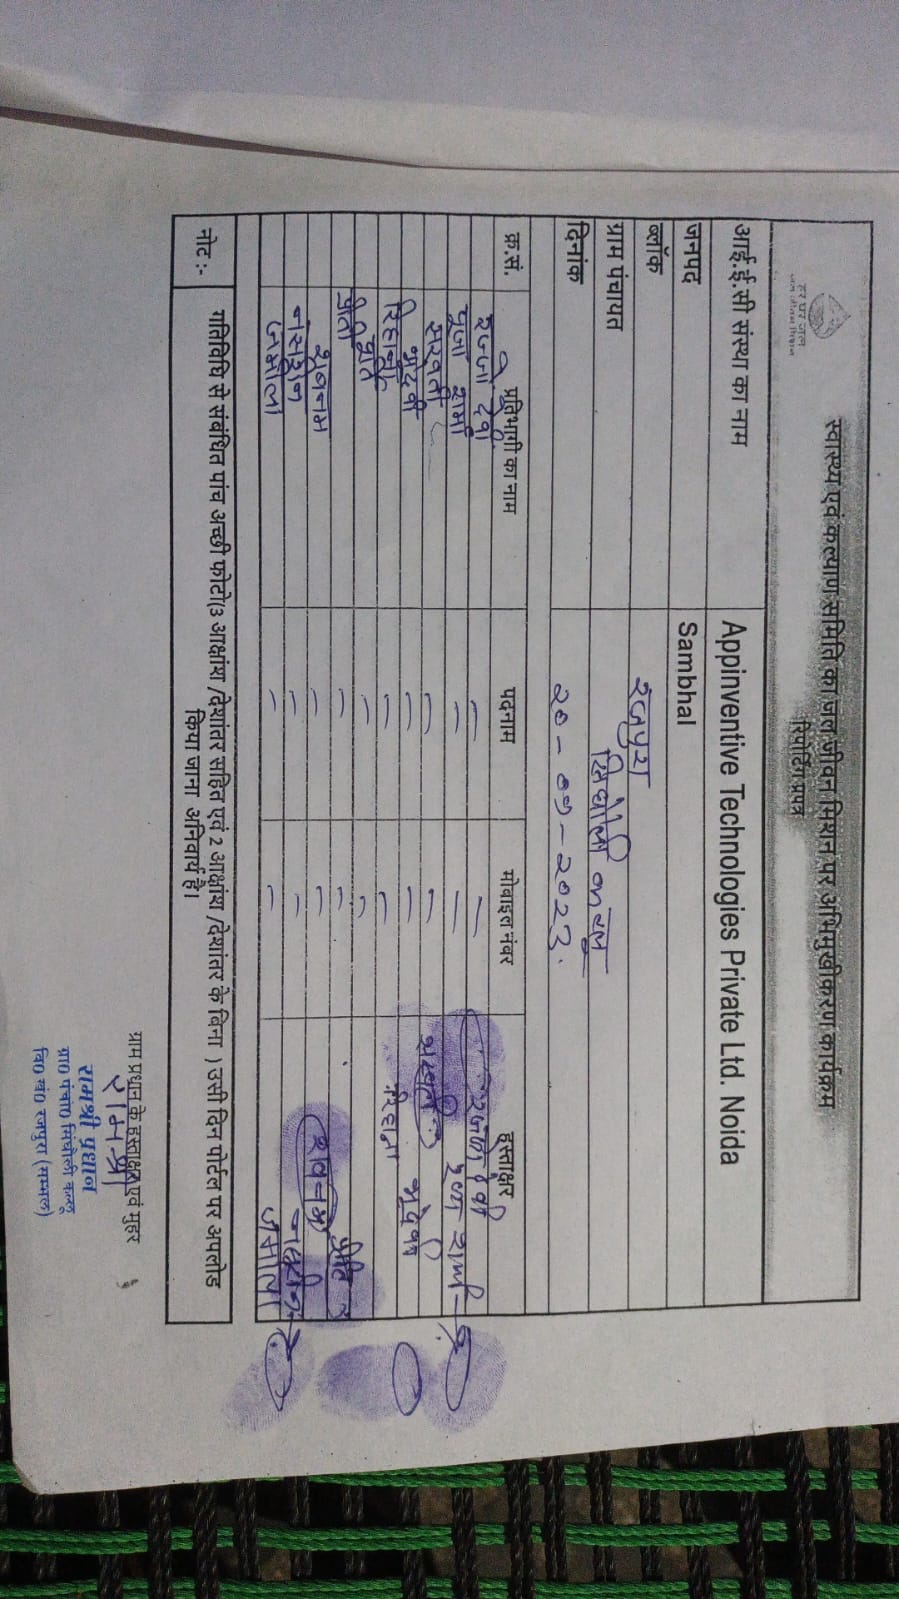 हर घर जल
जल जीवन मिशन
स्वास्थ्य एवं कल्याण समिति का जल जीवन मिशन पर अभिमुखीकरण कार्यक्रम
रिपोर्टिंग प्रपत्र
आई.ई.सी संस्था का नाम Appinventive Technologies Private Ltd. Noida
जनपद Sambhal
ब्लॉक रजपुरा
ग्राम पंचायत सिंघौली कल्लू
दिनांक २०-०७-2023.
क्र.सं. प्रतिभागी का नाम पदनाम मोबाइल नंबर हस्ताक्षर
रज्जो देवी
पूजा शर्मा पूजा शर्मा
सरवती
भूदेवी
रिहाना रिहाना
प्रीति
शबनम
जमीला
नोट:- गतिविधि से संबंधित पांच अच्छी फोटो(3 आक्षांश /देशांतर सहित एवं 2 आक्षांश /देशांतर के बिना ) उसी दिन पोर्टल पर अपलोड
किया जाना अनिवार्य है।
ग्राम प्रधान के हस्ताक्षर एवं मुहर
रामश्री
रामश्री प्रधान
ग्रा0 पंचा0 सिंघौली कल्लू
वि0 खं0 रजपुरा (सम्भल)